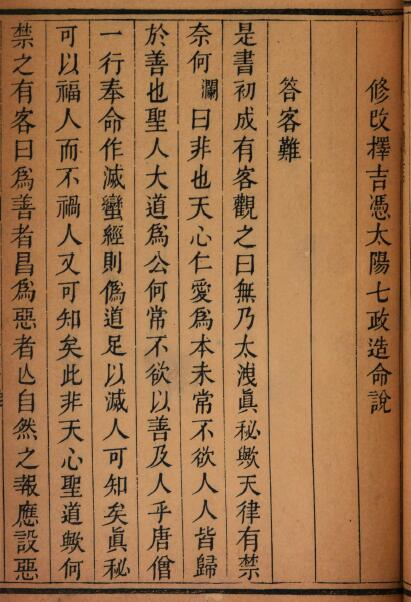 修改擇吉憑太陽七政造命說
答客難
是書初成有客觀之曰無乃太洩眞秘歟天律有禁
奈何瀾曰非也天心仁愛爲本未常不欲人人皆歸
於善也聖人大道爲公何常不欲以善及人乎唐僧
一行奉命作滅蠻經則僞道足以滅人可知矣眞秘
可以福人而不禍人又可知矣此非天心聖道歟何
禁之有客曰爲善者昌爲惡者亾自然之報應設惡